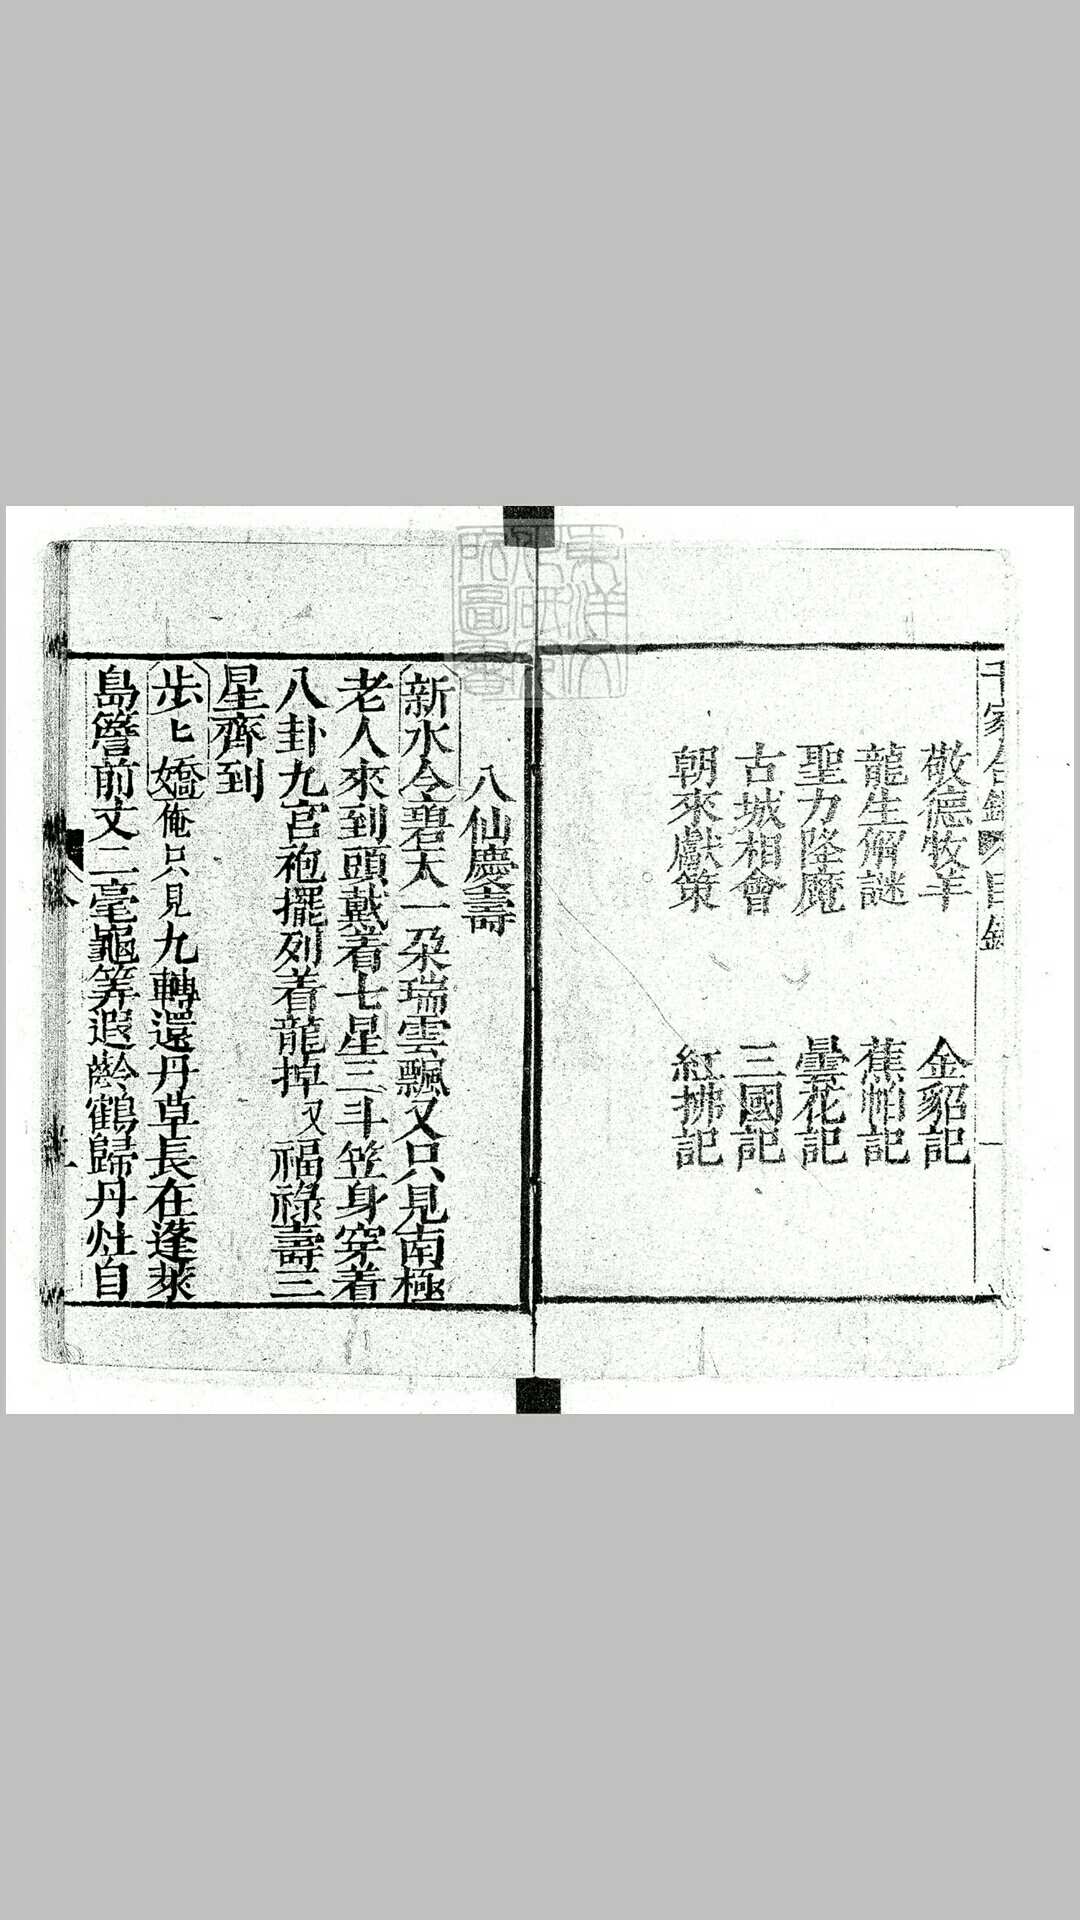 千家合錦 目錄 一
敬德牧羊 金貂記
龍生觧謎 蕉帕記
聖力隆魔 曇花記
古城相會 三國記
朝來獻策 紅拂記
八仙慶壽
新水令碧天一朶瑞雲飄又只見南極
老人來到頭戴着七星三斗笠身穿着
八卦九宮袍擺列着龍掉又福祿壽三
星齊到
步匕嬌俺只見九轉還丹草長在蓬萊
島簷前丈二毫龜筭遐齡鶴歸丹灶自